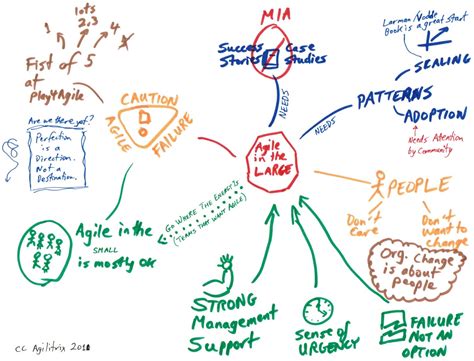 MIA
Success Stories
Case studies
NEEDS
lots
1 2,3 4
Fist of 5
at
Play4Agile
Are we there yet?
Perfection
is a
Direction.
Not a
Destination.
CAUTION
AGILE
FAILURE
Agile
in the
LARGE
Larman Vodde
Book is a great start
SCALING
PATTERNS
NEEDS
ADOPTION
Needs Attention
by Community
PEOPLE
Don't
care
Don't
want to
change
Org. Change
is about
people
Go Where The Energy Is
(Teams that want Agile)
Agile in the
SMALL
is mostly OK
STRONG
Management
Support
Sense of
URGENCY
FAILURE
NOT AN
OPTION
CC Agilitrix 2011